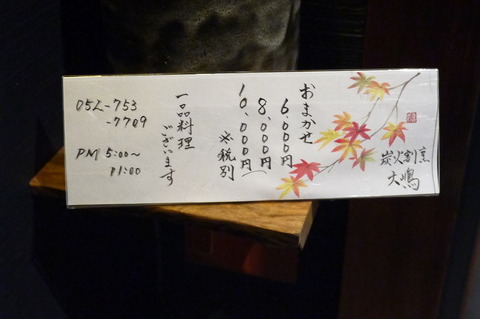 炭火割烹
大嶋
おまかせ
6,000円
8,000円
10,000円〜
※税別
一品料理
ございます
052-753
-7709
PM 5:00〜
11:00